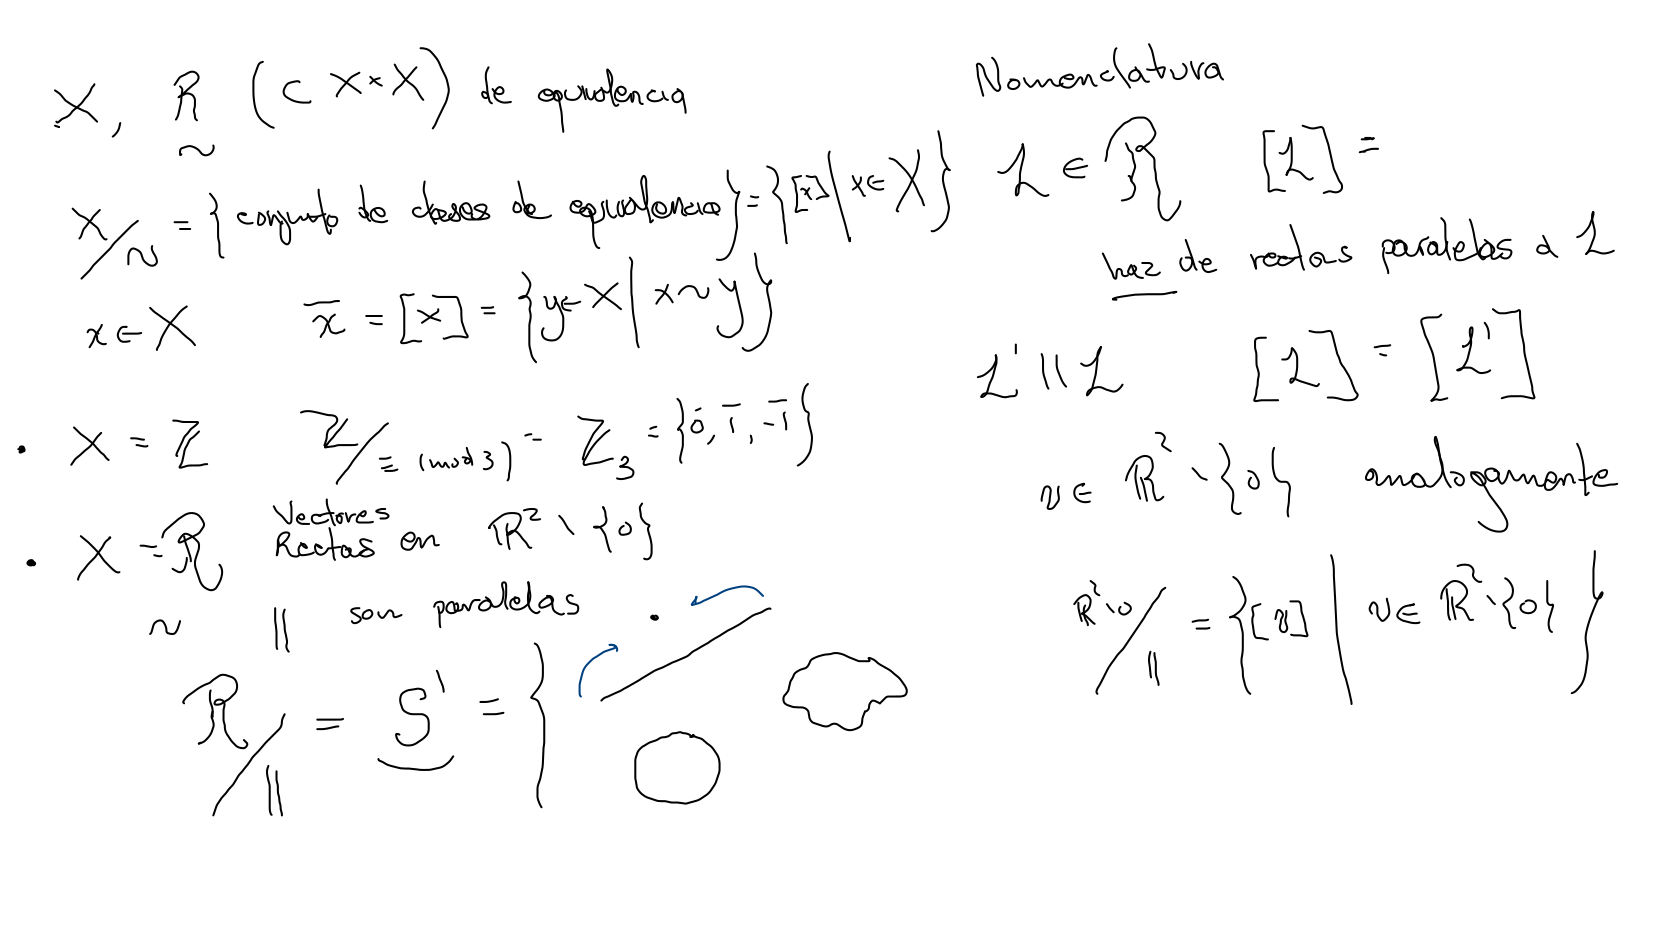 X, R (⊂ X×X) de equivalencia
~
X/~ = { conjunto de clases de equivalencia } = { [x] | x ∈ X }
x ∈ X x̅ = [x] = { y ∈ X | x ~ y }
• X = ℤ ℤ/≡ (mod 3) = ℤ₃ = { 0̅, 1̅, -1̅ }
Vectores
• X = ℛ Rectas en ℝ² \ {0}
~ || son paralelas
ℛ/|| = S¹ = {
Nomenclatura
ℒ ∈ ℛ [ℒ] =
haz de rectas paralelas a ℒ
ℒ' || ℒ [ℒ] = [ℒ']
v ∈ ℝ² \ {0} analogamente
ℝ² \ 0/|| = { [v] | v ∈ ℝ² \ {0} }